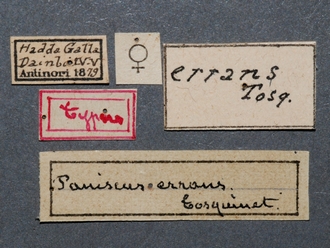 Hadda Galla
Antinori 1879
♀
errans
Tosq.
Typus
Paniscus errans.
Tosquinet.